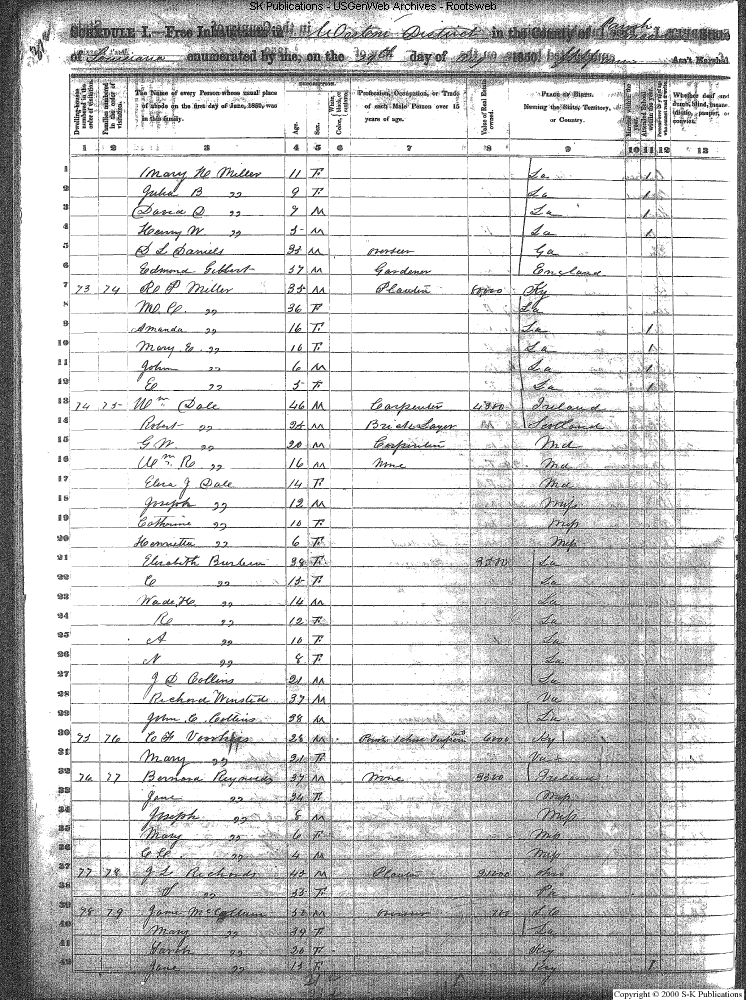 SK Publications - USGenWeb Archives - Rootsweb
SCHEDULE I.—Free Inhabitants in Western District in the County of Parish
of Louisiana enumerated by me, on the 29th day of 1850. Ass't Marshal.
Dwelling-houses numbered in the order of visitation. Families numbered in the order of visitation. The Name of every Person whose usual place of abode on the first day of June, 1850, was in this family. DESCRIPTION. Age. Sex. Color. Profession, Occupation, or Trade of each Male Person over 15 years of age. Value of Real Estate owned. PLACE OF BIRTH. Naming the State, Territory, or Country. Whether deaf and dumb, blind, insane, idiotic, pauper, or convict.
1 2 3 4 5 6 7 8 9 10 11 12 13
1 Mary H Miller 11 F La 1
2 Julia B " 9 F La 1
3 David D " 7 M La 1
4 Henry W " 5 M La 1
5 D L Daniels 35 M overseer Ga
6 Edmond Gilbert 57 M Gardener England
7 73 74 Re P Miller 35 M Planter Ky
8 M. C. " 36 F La
9 Amanda " 16 F La 1
10 Mary E. " 10 F La 1
11 John " 6 M La 1
12 E " 5 F La 1
13 74 75 Wm Dale 46 M Carpenter 4500 Ireland
14 Robert " 25 M Brick Layer Scotland
15 G W " 20 M Carpenter Md
16 Wm R " 16 M None Md
17 Eliza J Dale 14 F Md
18 Joseph " 12 M Miss
19 Catherine " 10 F Miss
20 Henrietta " 6 F Miss
21 Elizabeth 38 F 3500 La
22 C " 15 F La
23 Wade H. " 14 M La
24 R " 12 F La
25 A " 10 F La
26 N " 8 F La
27 J D Collins 21 M La
28 Richard Winsted 37 M Va
29 John C. Collins 38 M La
30 75 76 C H Voorhies 28 M 6000 Ky
31 Mary " 21 F
32 76 77 Bernard Reynolds 37 M None 3500 Ireland
33 Jane " 24 F Miss
34 Joseph " 8 M Miss
35 Mary " 6 F Miss
36 " 4 M Miss
37 77 78 J L Richards 45 M Planter Ohio
38 S " 35 F Pa
39 78 79 Jane McCallum 50 M overseer 700 S.C
40 Mary " 39 F La
41 Sarah " 20 F Ky
42 Jane " 15 F 1
Copyright © 2000 S-K Publications